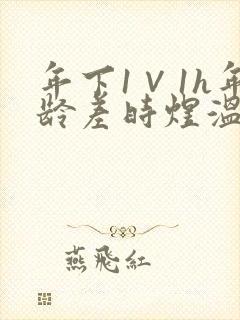 年下1V1h年
龄差时煜温
燕飛紅